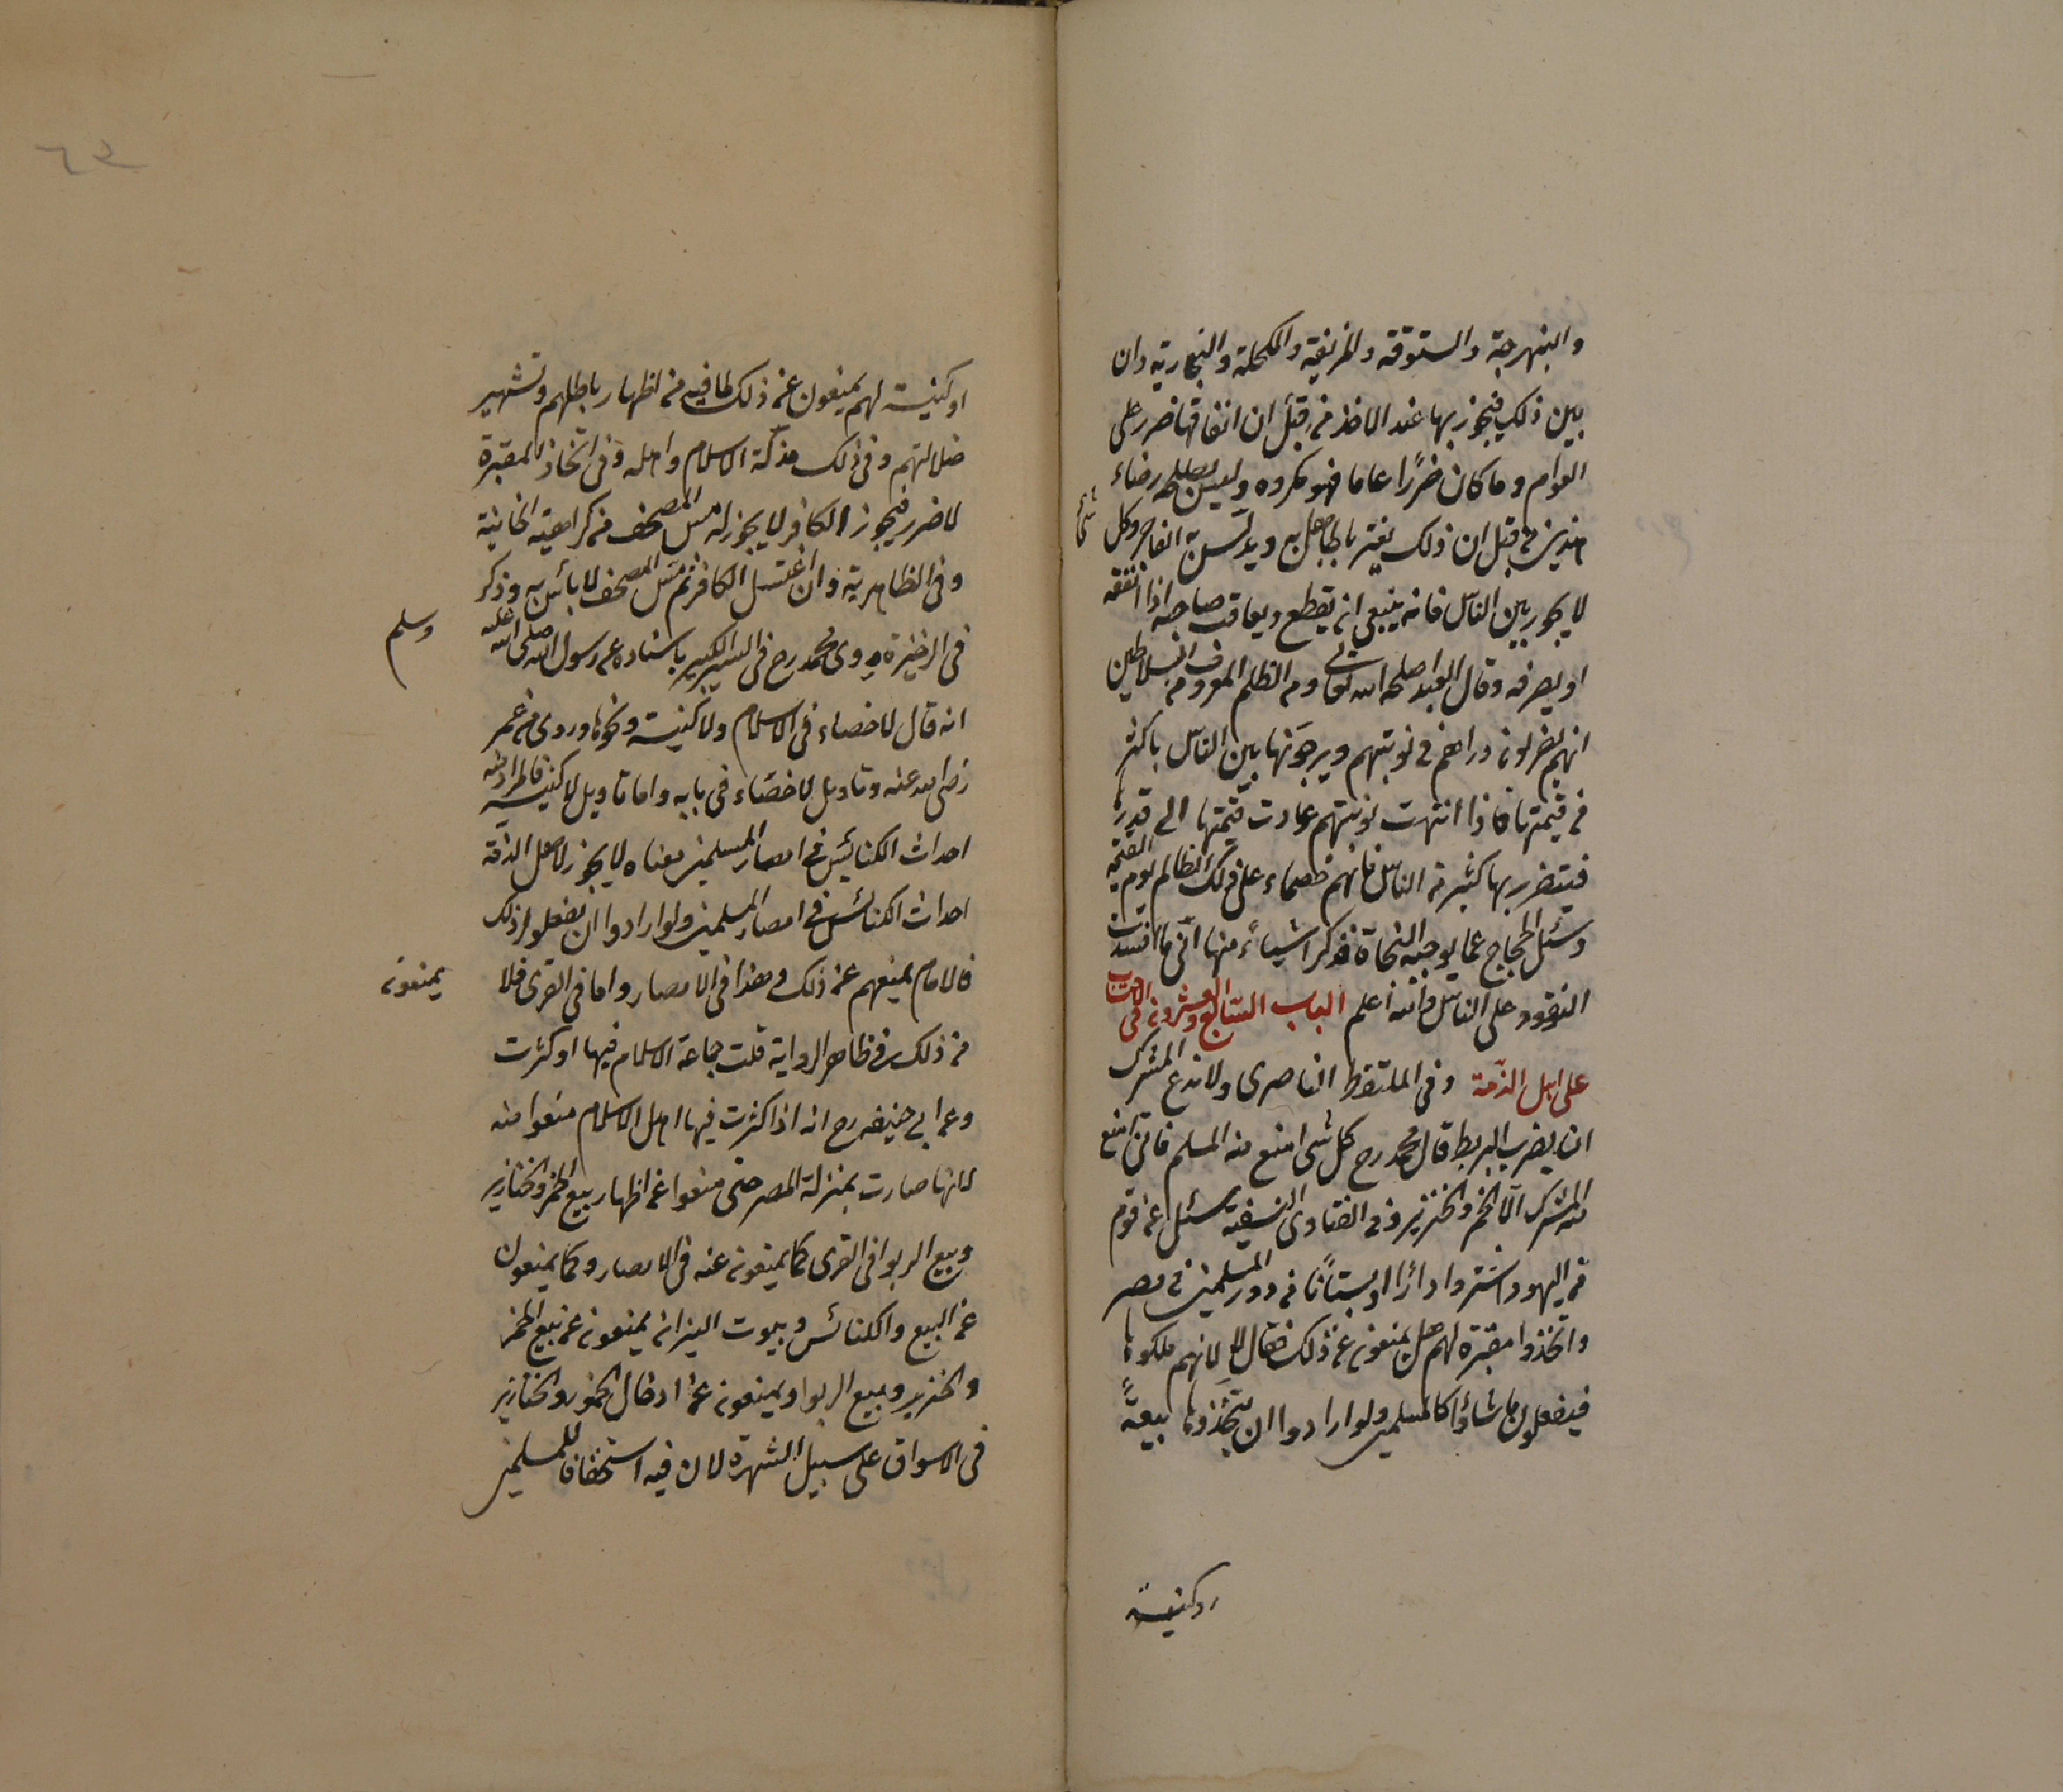 والبنهرجة والستوقة والمزيفة والمكحلة والبخارية وان
بين ذلك فيجوز بها عند الاخذ من قبل ان انفاقها ضرر على
العوام وما كان ضررا عاما فهو مكروه وليس يصلحه رضاء
هذين من قبل ان ذلك يغتر بالجاهل به ويدلس به الفاجر وكل شئ
لا يجوز بين الناس فانه ينبغي ان يقطع ويعاقب صاحبه اذا انفقه
او يصرفه وقال العبد اصلحه الله تعالى ومن الظلم المعروف من السلاطين
انهم يضربون دراهم في نوبتهم ويرجونها بين الناس باكثر
من قيمتها فاذا انتهت نوبتهم عادت قيمتها الى قدره
فيتضرر بها كثير من الناس فانهم خصماء على ذلك الظالم يوم القيمة
وسئل الحجاج عما يوجبه النجاة فذكر اشياء منها اني ما افسدت
النقود على الناس والله اعلم الباب السابع والعشرون في الاحتساب
على اهل الذمة وفي الملتقط الناصري ولا ندع المشرك
ان يضرب البربط قال محمد رح كل شئ امنع منه المسلم فاني امنع
منه المشرك الا الخمر والخنزير وفي الفتاوى النسفية سئل عن قوم
من اليهود اشتروا دارا او بستانا من دور المسلمين في مصر
واتخذوا مقبرة لهم هل يمنعون عن ذلك فقال لا لانهم ملكوها
فيفعلون ما شاؤا كالمسلمين ولو ارادوا ان يتخذوها بيعة
او كنيسة
او كنيسة لهم يمنعون عن ذلك لما فيه من اظهار باطلهم وتشهير
ضلالتهم وفي ذلك مذلة الاسلام واهله وفي اتخاذ المقبرة
لا ضرر فيجوز الكافر لا يجوز له مس المصحف من كراهية الخانية
وفي الظاهرية وان اغتسل الكافر ثم مس المصحف لا بأس به وذكر
في الذخيرة روى محمد رح في السير الكبير باسناده عن رسول الله صلى الله عليه وسلم
انه قال لا خصاء في الاسلام ولا كنيسة ونحوها وروى من عمر
رضى الله عنه وتاويل لا خصاء في بابه واما تاويل لا كنيسة فالمراد منه
احداث الكنائس في امصار المسلمين معناه لا يجوز لاهل الذمة
احداث الكنائس في امصار المسلمين ولو ارادوا ان يفعلوا ذلك
فالامام يمنعهم عن ذلك وهذا في الامصار واما في القرى فلا يمنعون
من ذلك في ظاهر الرواية قلت جماعة الاسلام فيها او كثرت
وعن ابي حنيفه رح انه اذا كثرت فيها اهل الاسلام منعوا منه
لانها صارت بمنزلة المصر حتى منعوا عن اظهار بيع الخمر والخنازير
وبيع الربوا في القرى كما يمنعون عنه في الامصار وكما يمنعون
عن البيع والكنائس وبيوت النيران يمنعون عن بيع الخمر
والخنزير وبيع الربوا ويمنعون عن ادخال الخمور والخنازير
في الاسواق على سبيل الشهرة لان فيه استخفافا للمسلمين